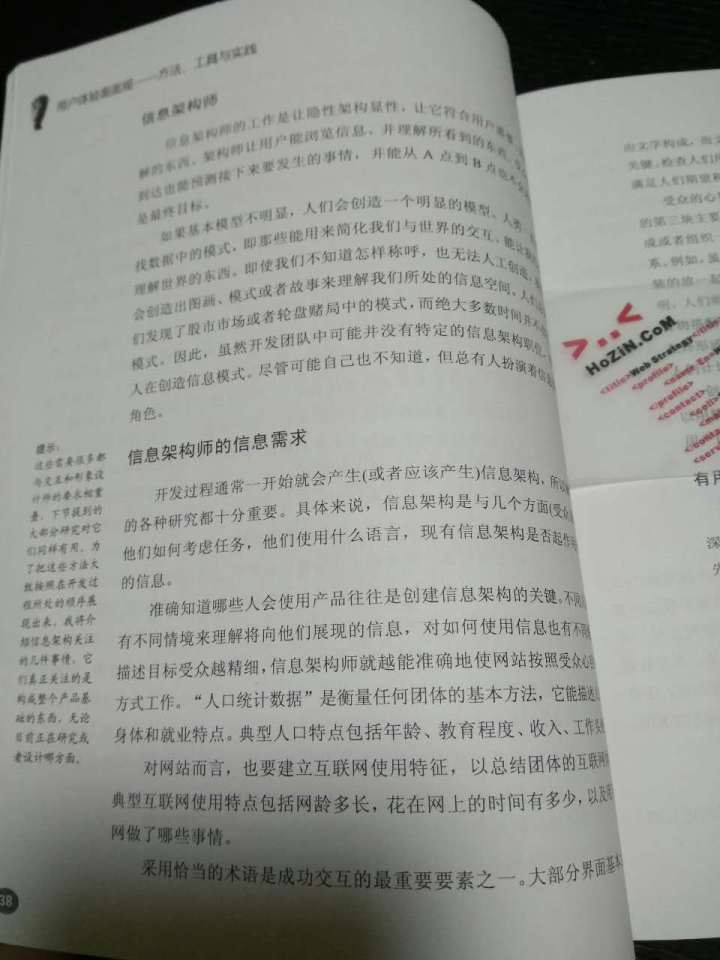 用户体验面面观——方法、工具与实践
信息架构师
信息架构师的工作是让隐性架构显性，让它符合用户需要
解的东西。架构师让用户能浏览信息，并理解所看到的东西
到达也能预测接下来要发生的事情，并能从 A 点到 B 点
是最终目标。
如果基本模型不明显，人们会创造一个明显的模型。人类
找数据中的模式，即那些能用来简化我们与世界的交互、能让我
理解世界的东西。即使我们不知道怎样称呼，也无法人工创造，
会创造出图画、模式或者故事来理解我们所处的信息空间。人们
们发现了股市市场或者轮盘赌局中的模式，而绝大多数时间并不
模式。因此，虽然开发团队中可能并没有特定的信息架构职位，
人在创造信息模式。尽管可能自己也不知道，但总有人扮演着信息
角色。
信息架构师的信息需求
开发过程通常一开始就会产生(或者应该产生)信息架构，所以
的各种研究都十分重要。具体来说，信息架构是与几个方面(受众
他们如何考虑任务，他们使用什么语言，现有信息架构是否起作
的信息。
准确知道哪些人会使用产品往往是创建信息架构的关键。不同
有不同情境来理解将向他们展现的信息，对如何使用信息也有不同
描述目标受众越精细，信息架构师就越能准确地使网站按照受众心
方式工作。“人口统计数据”是衡量任何团体的基本方法，它能描述
身体和就业特点。典型人口特点包括年龄、教育程度、收入、工作头
对网站而言，也要建立互联网使用特征，以总结团体的互联网
典型互联网使用特点包括网龄多长，花在网上的时间有多少，以及
网做了哪些事情。
采用恰当的术语是成功交互的最重要要素之一。大部分界面基本
提示：
这些需要很多都
与交互和形象设
计师的要求相重
叠，下节提到的
大部分研究对它
们同样有用。为
了把这些方法大
致按照在开发过
程所处的顺序展
现出来，我将介
绍信息架构关注
的几件事情，它
们真正关注的是
构成整个产品基
础的东西，无论
目前正在研究或
者设计哪方面。
38
由文字构成，而文
关键。检查人们所
满足人们期望和
受众的心
的第三块主要
成或者组织一
系。例如，虽
装的放一起
例，人们
>..<
HoZiN.CoM
<title>Web Strategy</title>
<profile>
<profile>
<contact>
有用
深